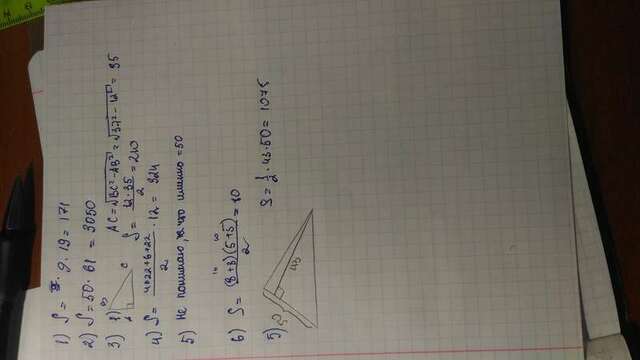 1) S = 9 · 19 = 171
2) S = 50 · 61 = 3050
3) AC = √BC² - AB² = √37² - 12² = 35
S = 12 · 35 / 2 = 210
4) S = 40+22+6+22 / 2 · 12 = 924
5) Не понимаю, за что пишаю = 50
6) S = (8+8)(5+5) / 2 = 80
5) S = 1/2 · 43 · 50 = 1075
43
50